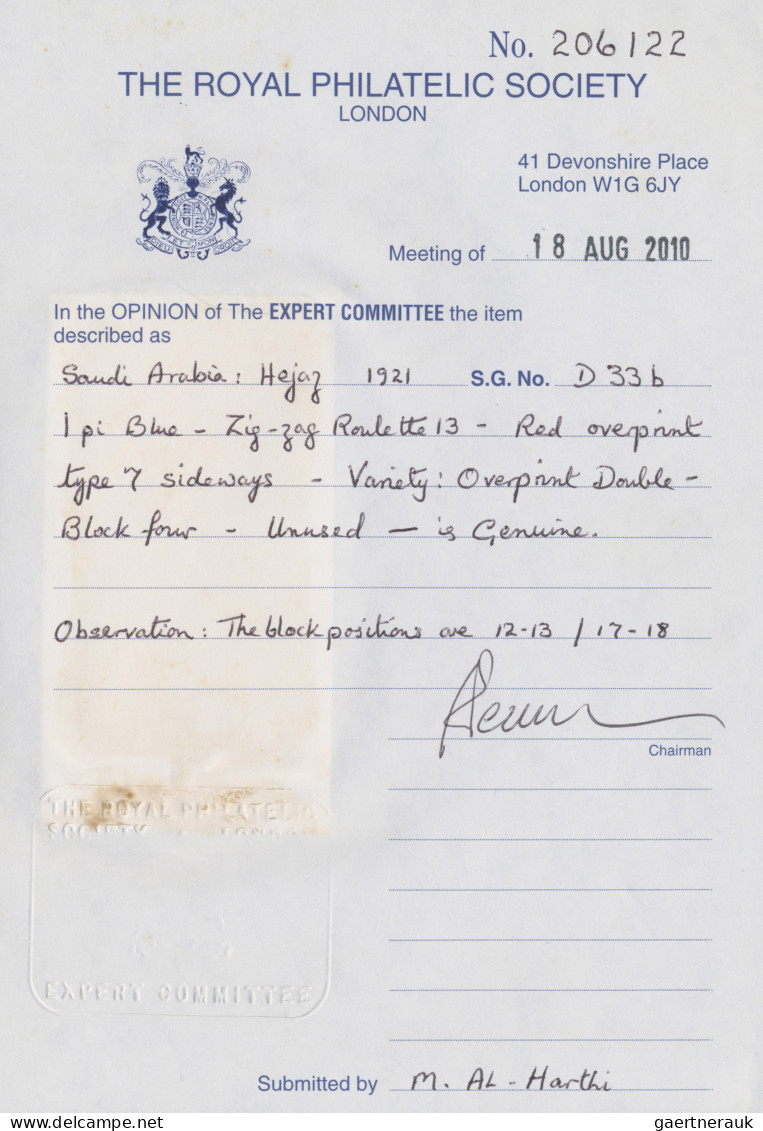 No. 206122
THE ROYAL PHILATELIC SOCIETY
LONDON
41 Devonshire Place
London W1G 6JY
Meeting of 18 AUG 2010
In the OPINION of The EXPERT COMMITTEE the item
described as
Saudi Arabia: Hejaz 1921 S.G. No. D 33b
1 pi Blue - Zig-zag Roulette 13 - Red overprint
type 7 sideways - Variety: Overprint Double -
Block four - Unused - is Genuine.
Observation: The block positions are 12-13 / 17-18
Chairman
THE ROYAL PHILATELIC
SOCIETY LONDON
EXPERT COMMITTEE
Submitted by M. AL-Harthi
www.delcampe.net
gaertnerauk